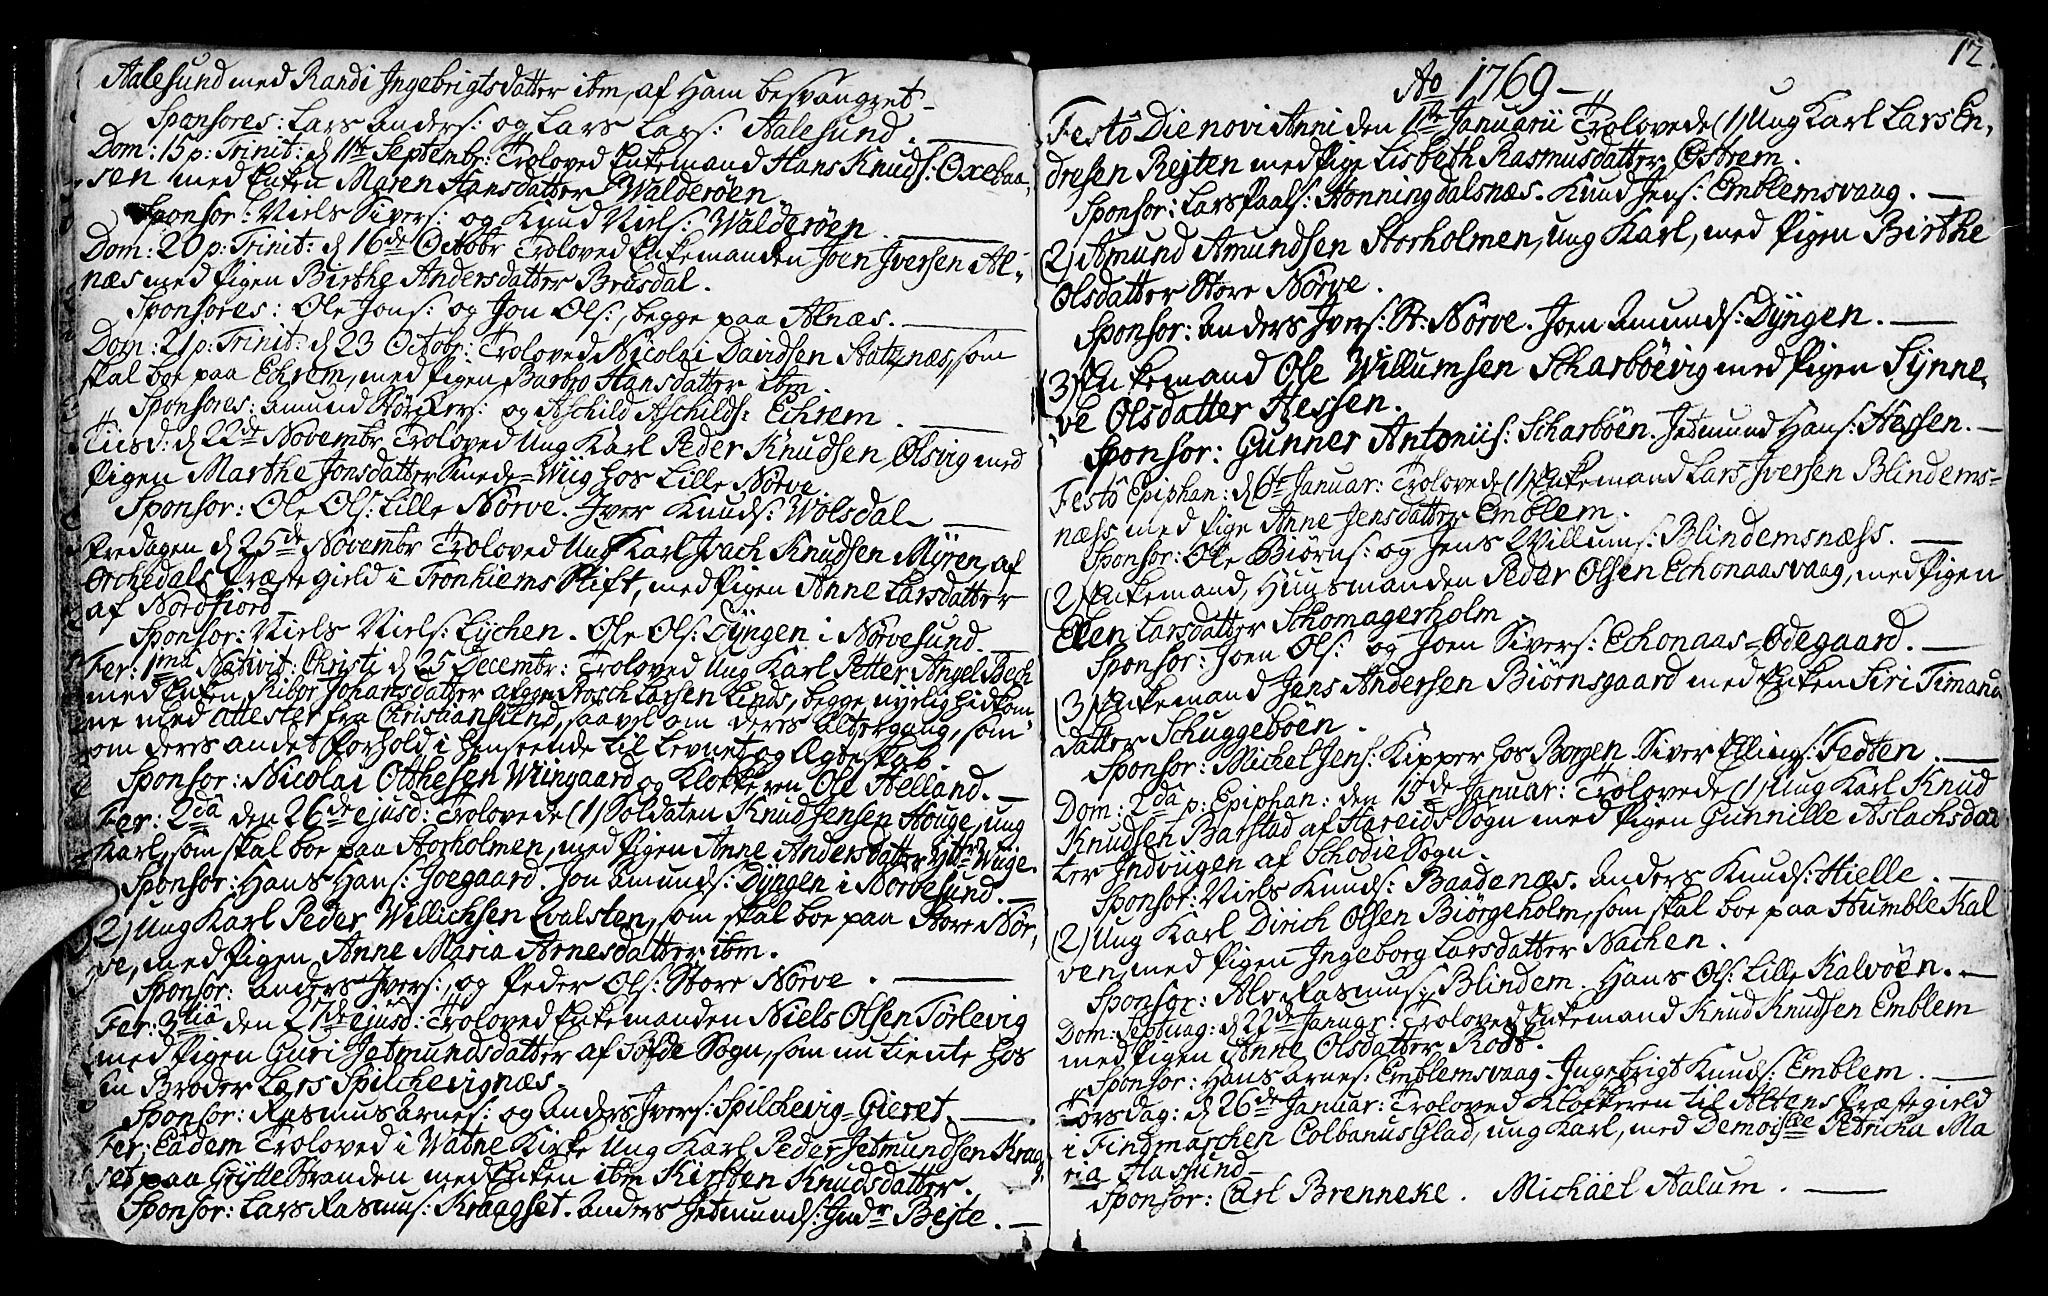 Aalesund med Randi Ingebrigtsdatter ibm, af Ham besvangret
Sponsores: Lars Anders: og Lars Lars: Aalesund.
Dom: 15 p: Trinit: d 11te Septembr: Troloved Enkemand Hans Knuds: Oxebaa-
sen med Enken Maren Hansdatter Walderöen.
Sponsor: Niels Sivers: og Knud Niels: Walderöen.
Dom: 20 p: Trinit: d 16de Octobr Troloved Enkemanden Joen Iversen Al-
næs med Pigen Birthe Andersdatter Brusdal.
Sponsores: Ole Jons: og Jon Ols:, begge paa Alnæs.
Dom: 21 p: Trinit: d 23 Octobr: Troloved Nicolai Davidsen Statznæs, som
skal boe paa Echrem, med Pigen Barbro Hansdatter ibm.
Sponsores: Amund Störkers: og Aschild Aschilds: Echrem.
Tiisd: d 22de Novembr Troloved Ung Karl Peder Knudsen Ølsvig med
Pigen Marthe Jonsdatter Smede-Wiig hos Lille Nörve
Sponsor: Ole Ols: Lille Nörve. Iver Knuds: Wolsdal
Fredagen d 25de Novembr Troloved Ung Karl Isach Knudsen Myren, af
Orchedals Præstegield i Tronhiems Stift, med Pigen Anne Larsdatter
af Nordfiord
Sponsor: Niels Niels: Eychen. Ole Ols: Dyngen i Nörvesund.
Fer: 1ma Nativit: Christi d 25 Decembr: Troloved Ung Karl Petter Angel Bech
med Enken Ribor Johansdatter afggne Stosch Larsen Linds, begge nylig hidkom-
ne med attester fra Christiansund, saavel om deres Altergang, som
om deres andet Forhold i henseende til Levnet og Ægteskab.
Sponsor: Nicolai Otthesen Wiingaard og Klokkeren Ole Helland.
Fer: 2da den 26de ejusd: Trolovede (1) Soldaten Knud Jensen Houge, ung
Karl, som skal boe paa Storholmen, med Pigen Anne Andersdatter Yttr Wiige.
Sponsor: Hans Hans: Goegaard. Jon Amunds: Dyngen i Nörvesund.
(2) Ung Karl Peder Willichsen Qvalsten, som skal boe paa Store Nör-
ve, med Pigen Anne Maria Arnesdatter ibm.
Sponsor: Anders Ivers:, og Peder Ols: Store Nörve.
Fer: 3tia den 27de ejusd: Troloved Enkemanden Niels Olsen Törlevig
med Pigen Guri Jetmundsdatter af Söfde Sogn, som nu tiente hos
sin Broder Lars Spilchevignæs.
Sponsor: Rasmus Arnes: og Anders Ivers: Spilchevig-Gieret.
Fer: Eadem Troloved i Watne Kirke Ung Karl Peder Jetmundsen Kraag-
set paa Grytte Stranden med Enken ibm Kirsten Knudsdatter.
Sponsor: Lars Rasmus: Kraagset. Anders Jetmunds: Indr Bejte.
12.
Ao 1769
Festo Die novi Anni den 1te Januarii Trolovede (1) Ung Karl Lars En-
dresen Rejten med Pige Lisbeth Rasmusdatter Östrem.
Sponsor: Lars Paals: Honningdalsnæs. Knud Jens: Emblemsvaag.
(2) Amund Amundsen Storholmen, ung Karl, med Pigen Birthe
Olsdatter Store Nörve.
Sponsor: Anders Ivers: St: Nörve. Joen Amunds: Dyngen.
(3) Enkemand Ole Willumsen Scharböevig med Pigen Synne-
ve Olsdatter Hessen.
Sponsor: Gunner Antoniis: Scharböen. Jetmund Hans: Hessen.
Festo Epiphan: d 6te Januar: Trolovede (1) Enkemand Lars Iversen Blindems-
næss med Pige Anne Jensdatter Emblem.
Sponsor: Ole Biörns: og Jens Willums: Blindemsnæss.
(2) Enkemand, Huusmanden Peder Olsen Echonaasvaag, med Pigen
Elen Larsdatter Schomagerholm
Sponsor: Joen Ols: og Joen Sivers: Echonaas-Ødegaard.
(3) Enkemand Jens Andersen Biörnsgaard med Enken Siri Timand
datter Schuggeböen.
Sponsor: Michel Jens: Kipper hos Bozen. Siver Ellings: Fedten.
Dom: 2da p: Epiphan: den 15de Januar: Trolovede (1) Ung Karl Knud
Knudsen Barstad af Hareids Sogn med Pigen Gunnille Aslachsdat
ter Indvigen af Schodie Sogn.
Sponsor: Niels Knuds: Baadenæs. Anders Knuds: Hielle.
(2) Ung Karl Dirich Olsen Biörgeholm, som skal boe paa Humble Kal
ven, med Pigen Ingeborg Larsdatter Nachen.
Sponsor: Alv Rasmus: Blindem. Hans Ols: Lille Kalvöen.
Dom: Septuag: d 22de Januar: Troloved Enkemand Knud Knudsen Emblem
med Pigen Anne Olsdatter Rodt.
Sponsor: Hans Arnes: Emblemsvaag. Ingebrigt Knuds: Emblem.
Torsdag: d 26de Januar: Troloved Klockeren til Altens Præstegield
i Findmarchen Colbanus Glad, ung Karl, med Demoiselle Petricha Ma
ria Aasund
Sponsor: Carl Brenneke. Michäel Aalum.